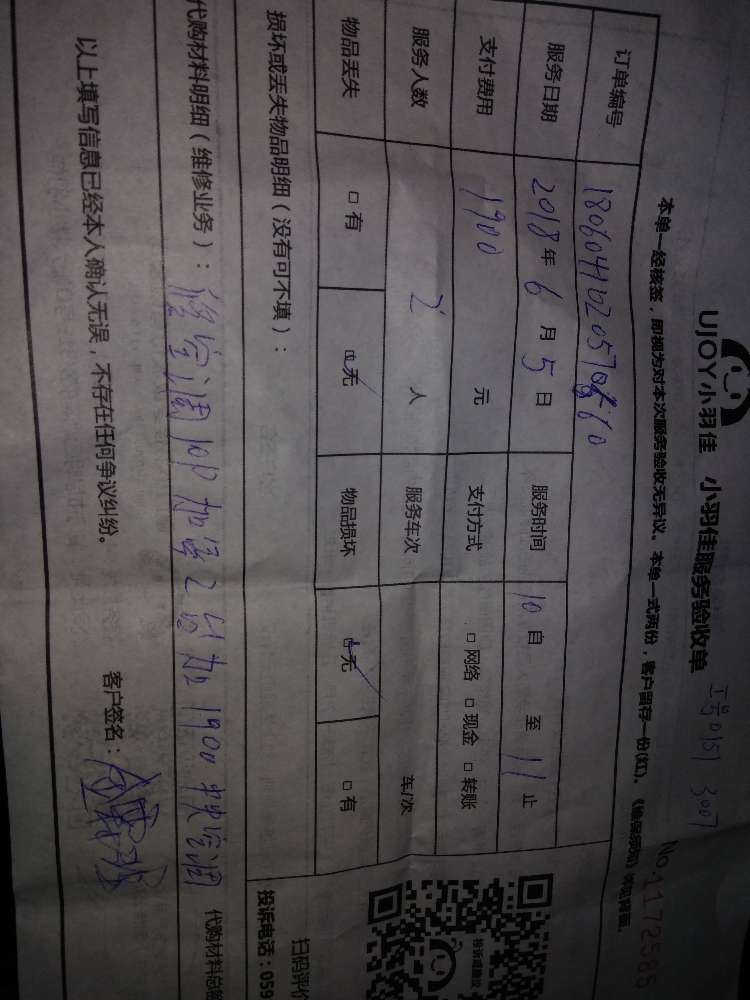 UJOY小羽佳 小羽佳服务验收单
工号0151 3007
No:1172585
本单一经核签，即视为对本次服务验收无异议。本单一式两份，客户留存一份(红)。
订单编号
服务日期 2018年6月5日 服务时间 10自 至11止
支付费用 1900 元 支付方式 □网络 □现金 □转账
服务人数 2 人 服务车次 车/次
物品丢失 □有 □无 物品损坏 □无 □有
损坏或丢失物品明细（没有可不填）：
代购材料明细（维修业务）： 修空调10P加 1900 空调
代购材料总
以上填写信息已经本人确认无误，不存在任何争议纠纷。 客户签名：
投诉或建议
扫码评价
投诉电话：059